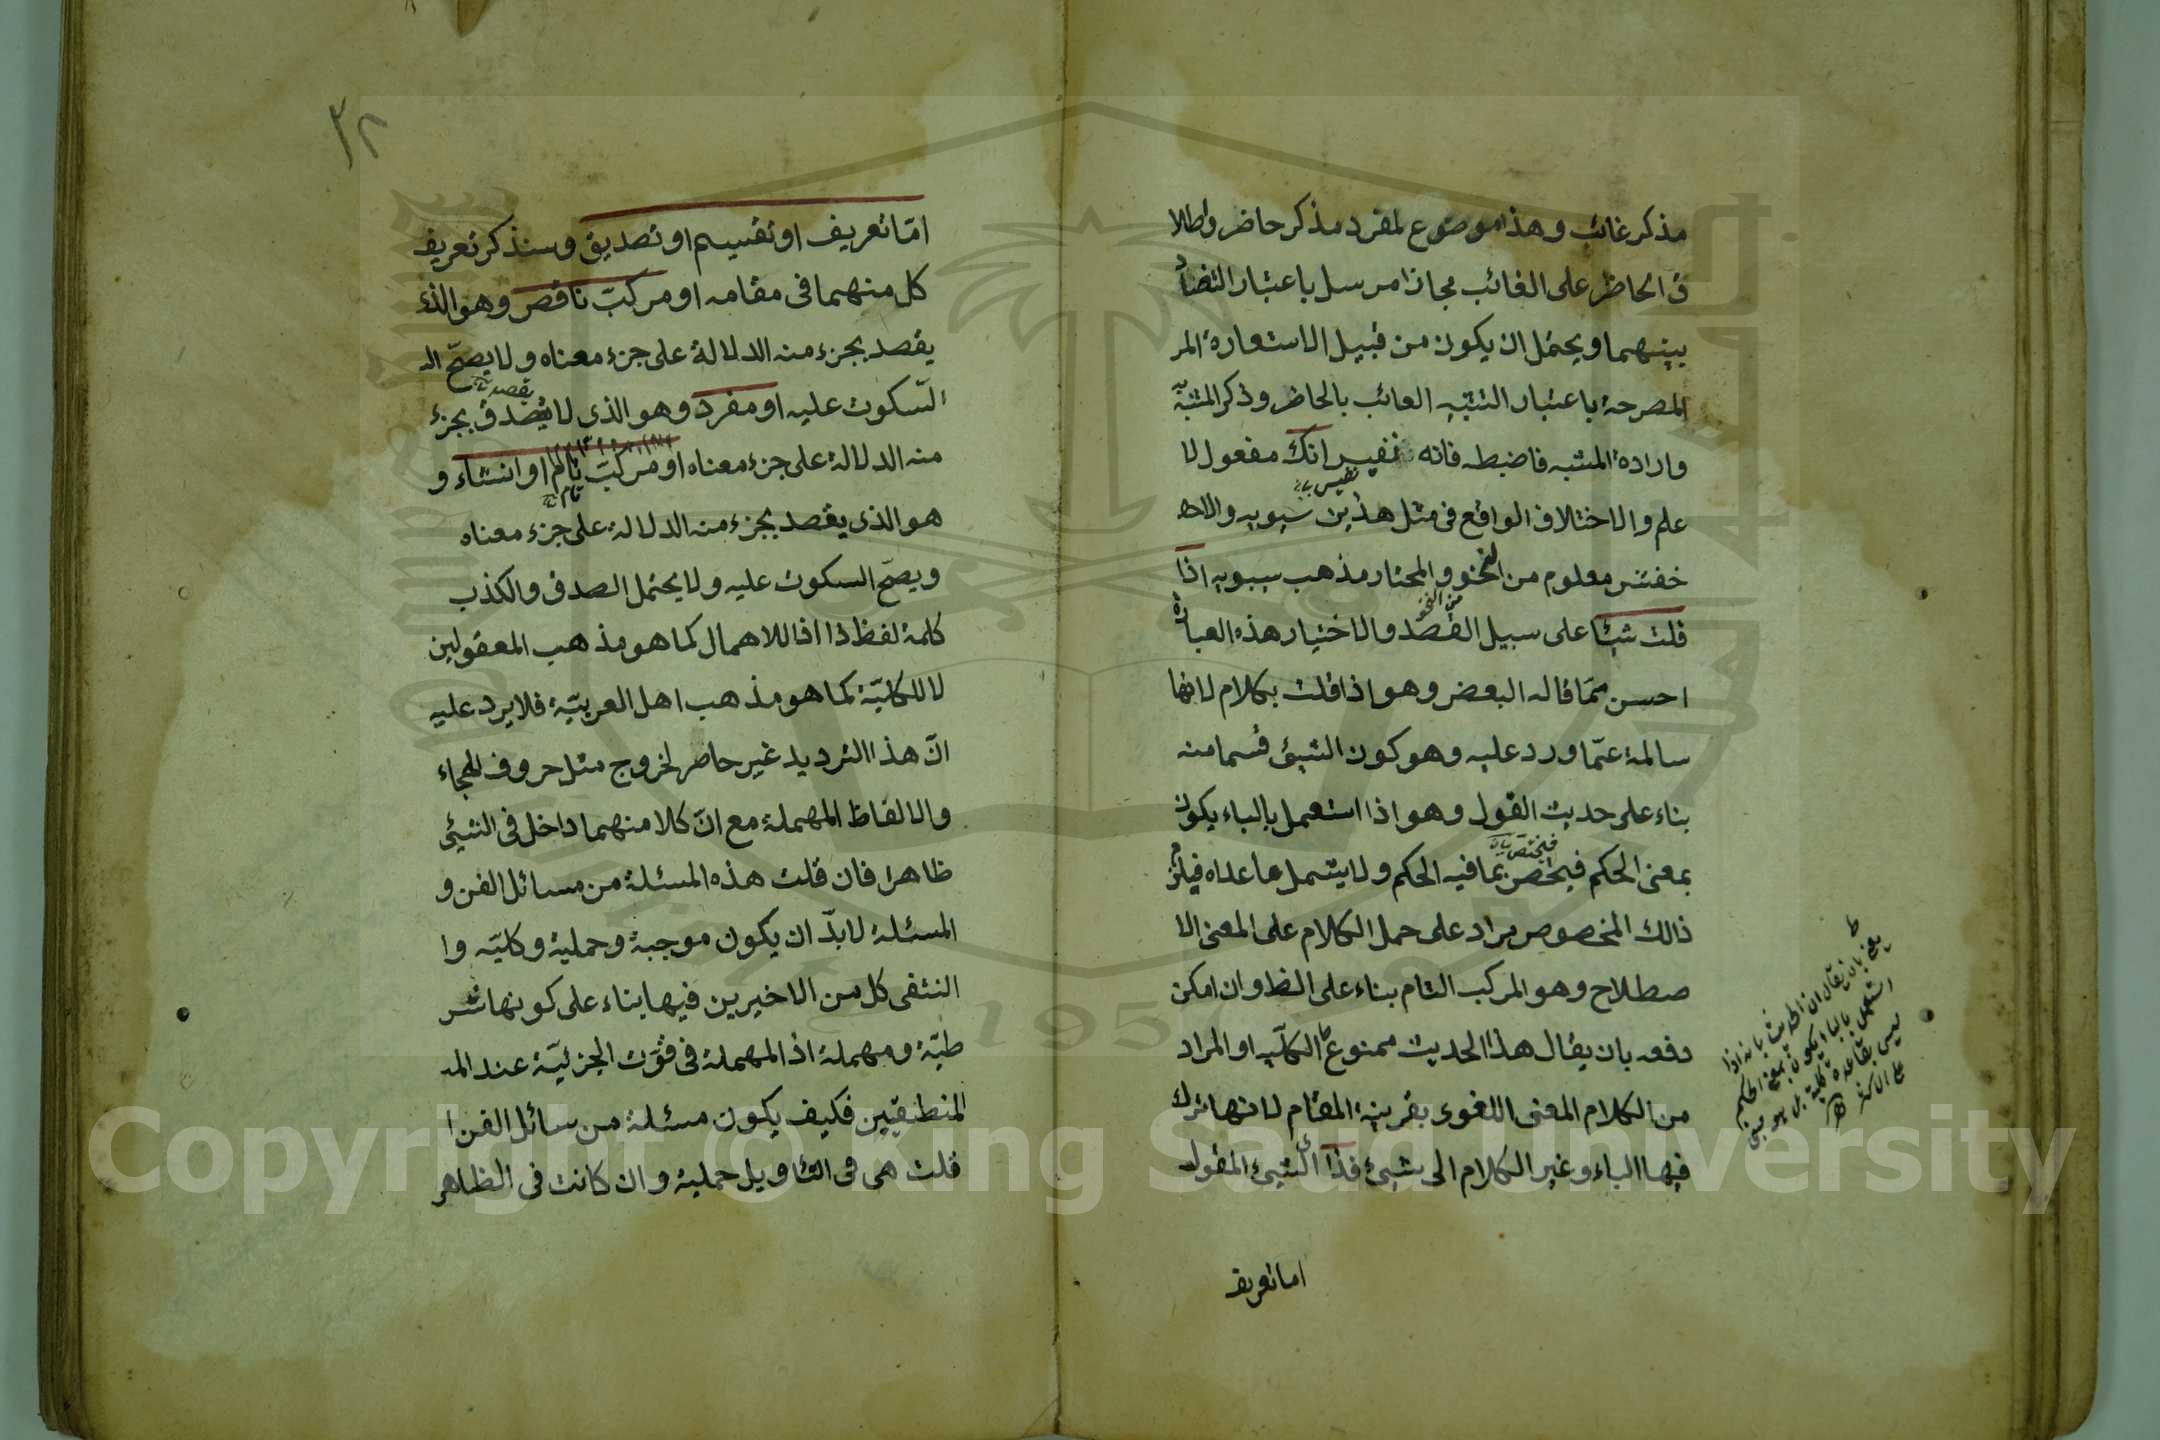 مذكر غائب وهذا موضوع لمفرد مذكر حاضر واطلا
ق الحاضر على الغائب مجازا مرسل باعتبار التضاد
بينهما ويحتمل ان يكون من قبيل الاستعارة المر
المصرحة باعتبار التشبيه الغائب بالحاضر وذكر المشبه
وارادة المشبه فاضبطه فانه نفيس انك مفعول لا
نفيس
علم والاختلاف الواقع فى مثل هذين سيبويه والاخ
خفش معلوم من النحو والمختار مذهب سيبويه اذا
من النحو
قلت شيئا على سبيل القصد والاختيار هذه العبارة
احسن مما قاله البعض وهو اذا قلت بكلام لانها
سالمة عما ورد عليه وهو كون الشيئ قسما منه
بناء على حديث القول وهو اذا استعمل بالباء يكون
فيختص
بمعنى الحكم فيختص بما فيه الحكم ولا يشمل ما عداه فيلزم
ذالك المخصوص مراد على حمل الكلام على المعنى الا
صطلاح وهو المركب التام بناء على الظ وان امكن
دفعه بان يقال هذا الحديث ممنوع الكليه او المراد
من الكلام المعنى اللغوى بقرينة المقام لانها ترك
فيها الباء وغير الكلام الى شيئ فذا الشيئ المقول
اما تعريف
ط
يعنى بان يقال ان الحديث بانه اذا
استعمل بالباء يكون بمعنى الحكم
ليس بقاعدة كلية بل هو مبنى
على الاكثر
٣٢
امّا تعريف او تقسيم او تصديق وسنذكر تعريف
كل منهما فى مقامه او مركبّ ناقص وهو الذى
يقصد بجزء منه الدلالة على جزء معناه ولا يصحّ ال
يقصد
السّكوت عليه او مفرد وهو الذى لا يصدق بجزء
منه الدلالة على جزء معناه او مركب تام او انشاء و
تام
هو الذى يقصد بجزء منه الدلالة على جزء معناه
ويصحّ السكوت عليه ولا يحتمل الصدق والكذب
كلمة لفظ ذا اذا للاهمال كما هو مذهب المعقولين
لا للكليّة كما هو مذهب اهل العربيّة فلا يرد عليه
انّ هذا الترديد غير حاصر لخروج مثل حروف الهجاء
والالفاظ المهملة مع انّ كلا منهما داخل فى الشيئ
ظاهرا فان قلت هذه المسئلة من مسائل الفن و
المسئلة لابدّ ان يكون موجبة وحملية وكليّه وا
النتفى كل من الاخيرين فيها بناء على كونها شر
طيّة ومهملة اذ المهملة فى قوّت الجزئيّة عند الم
المنطقيين فكيف يكون مسئلة من سائل الفن ا
قلت هى فى التاويل حملية وان كانت فى الظاهر
Copyright © King Saud University
1957